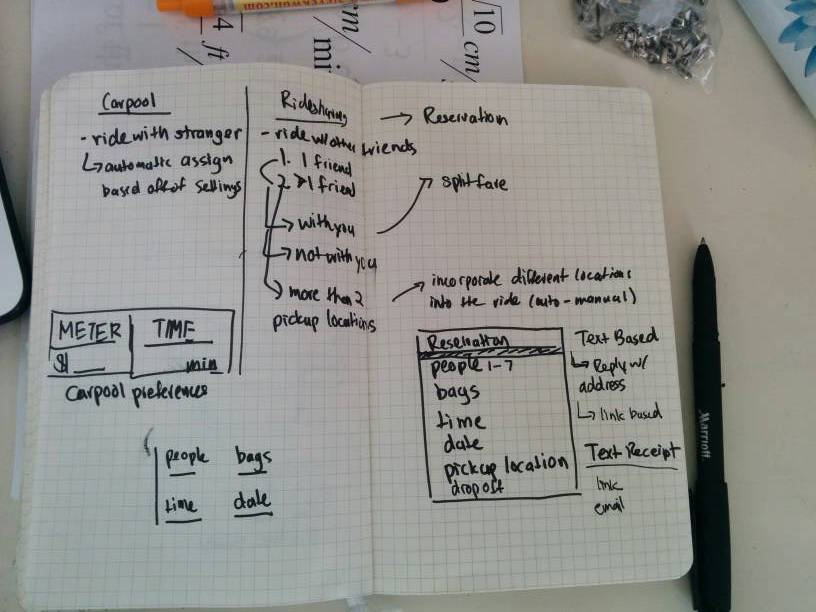 Carpool
- ride with stranger
↳ automatic assign
based off of settings
METER | TIME
$1 ___ | ___ min
Carpool preferences
people bags
time date
Ridesharing → Reservation
- ride w/ other friends
1. 1 friend
2 >1 friend
→ with you → split fare
→ not with you
→ more than 2
pickup locations
→ incorporate different locations
into the ride (auto-manual)
Reservation
people 1-7
bags
time
date
pickup location
dropoff
Text Based
↳ Reply w/
address
↳ link based
Text Receipt
link
email
Marriott
√10 cm/
cm/
mi
4 ft/